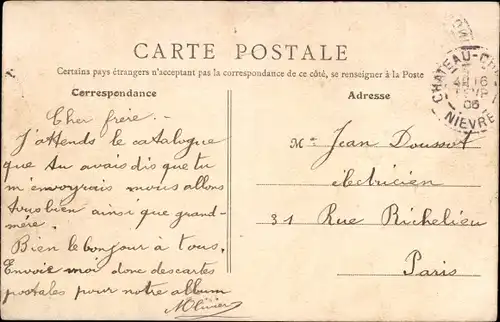 CARTE POSTALE
Certains pays étrangers n'acceptant pas la correspondance de ce côté, se renseigner à la Poste
Correspondance
Cher frère.
J'attends le catalogue
que tu avais dis que tu
m'envoyrais nous allons
tous bien ainsi que grand-
mère.
Bien le bonjour à tous.
Envoie moi donc des cartes
postales pour notre album
MOlivier
Adresse
Mr Jean Doussot
électricien
31 Rue Richelieu
Paris
CHATEAU-CH
06
NIEVRE